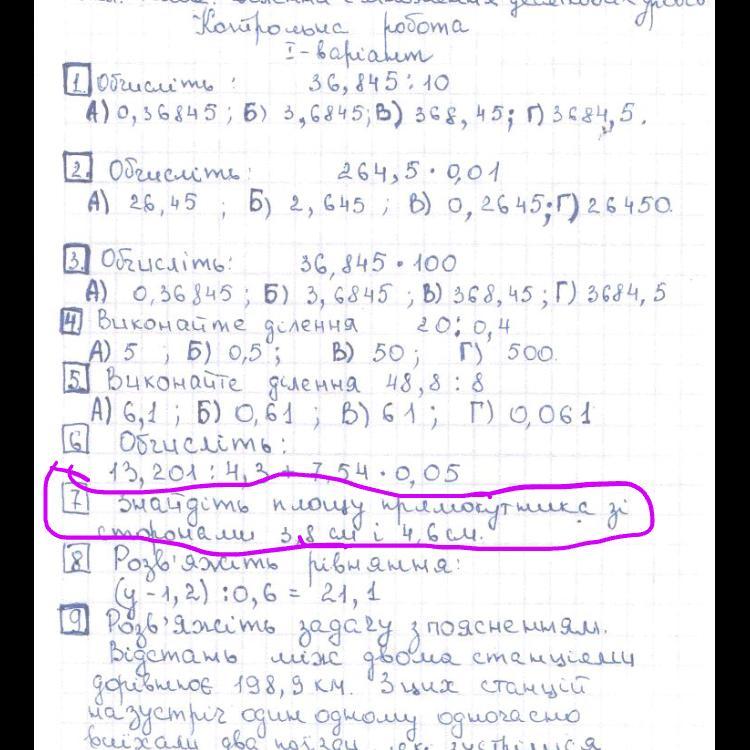 множення десяткових дробів
Контрольна робота
I-варіант
1. Обчисліть: 36,845:10
А) 0,36845; Б) 3,6845; В) 368,45; Г) 3684,5.
2. Обчисліть: 264,5·0,01
А) 26,45; Б) 2,645; В) 0,2645; Г) 26450.
3. Обчисліть: 36,845·100
А) 0,36845; Б) 3,6845; В) 368,45; Г) 3684,5
4 Виконайте ділення 20:0,4
А) 5; Б) 0,5; В) 50; Г) 500.
5. Виконайте ділення 48,8:8
А) 6,1; Б) 0,61; В) 61; Г) 0,061
6 Обчисліть:
13,201:4,3+7,54·0,05
7 Знайдіть площу прямокутника зі
сторонами 3,8 см і 4,6 см.
8 Розв'яжіть рівняння:
(y-1,2):0,6= 21,1
9 Розв'яжіть задачу з поясненням.
Відстань між двома станціями
дорівнює 198,9 км. З цих станцій
назустріч один одному одночасно
виїхали два поїзди, які зустрілися